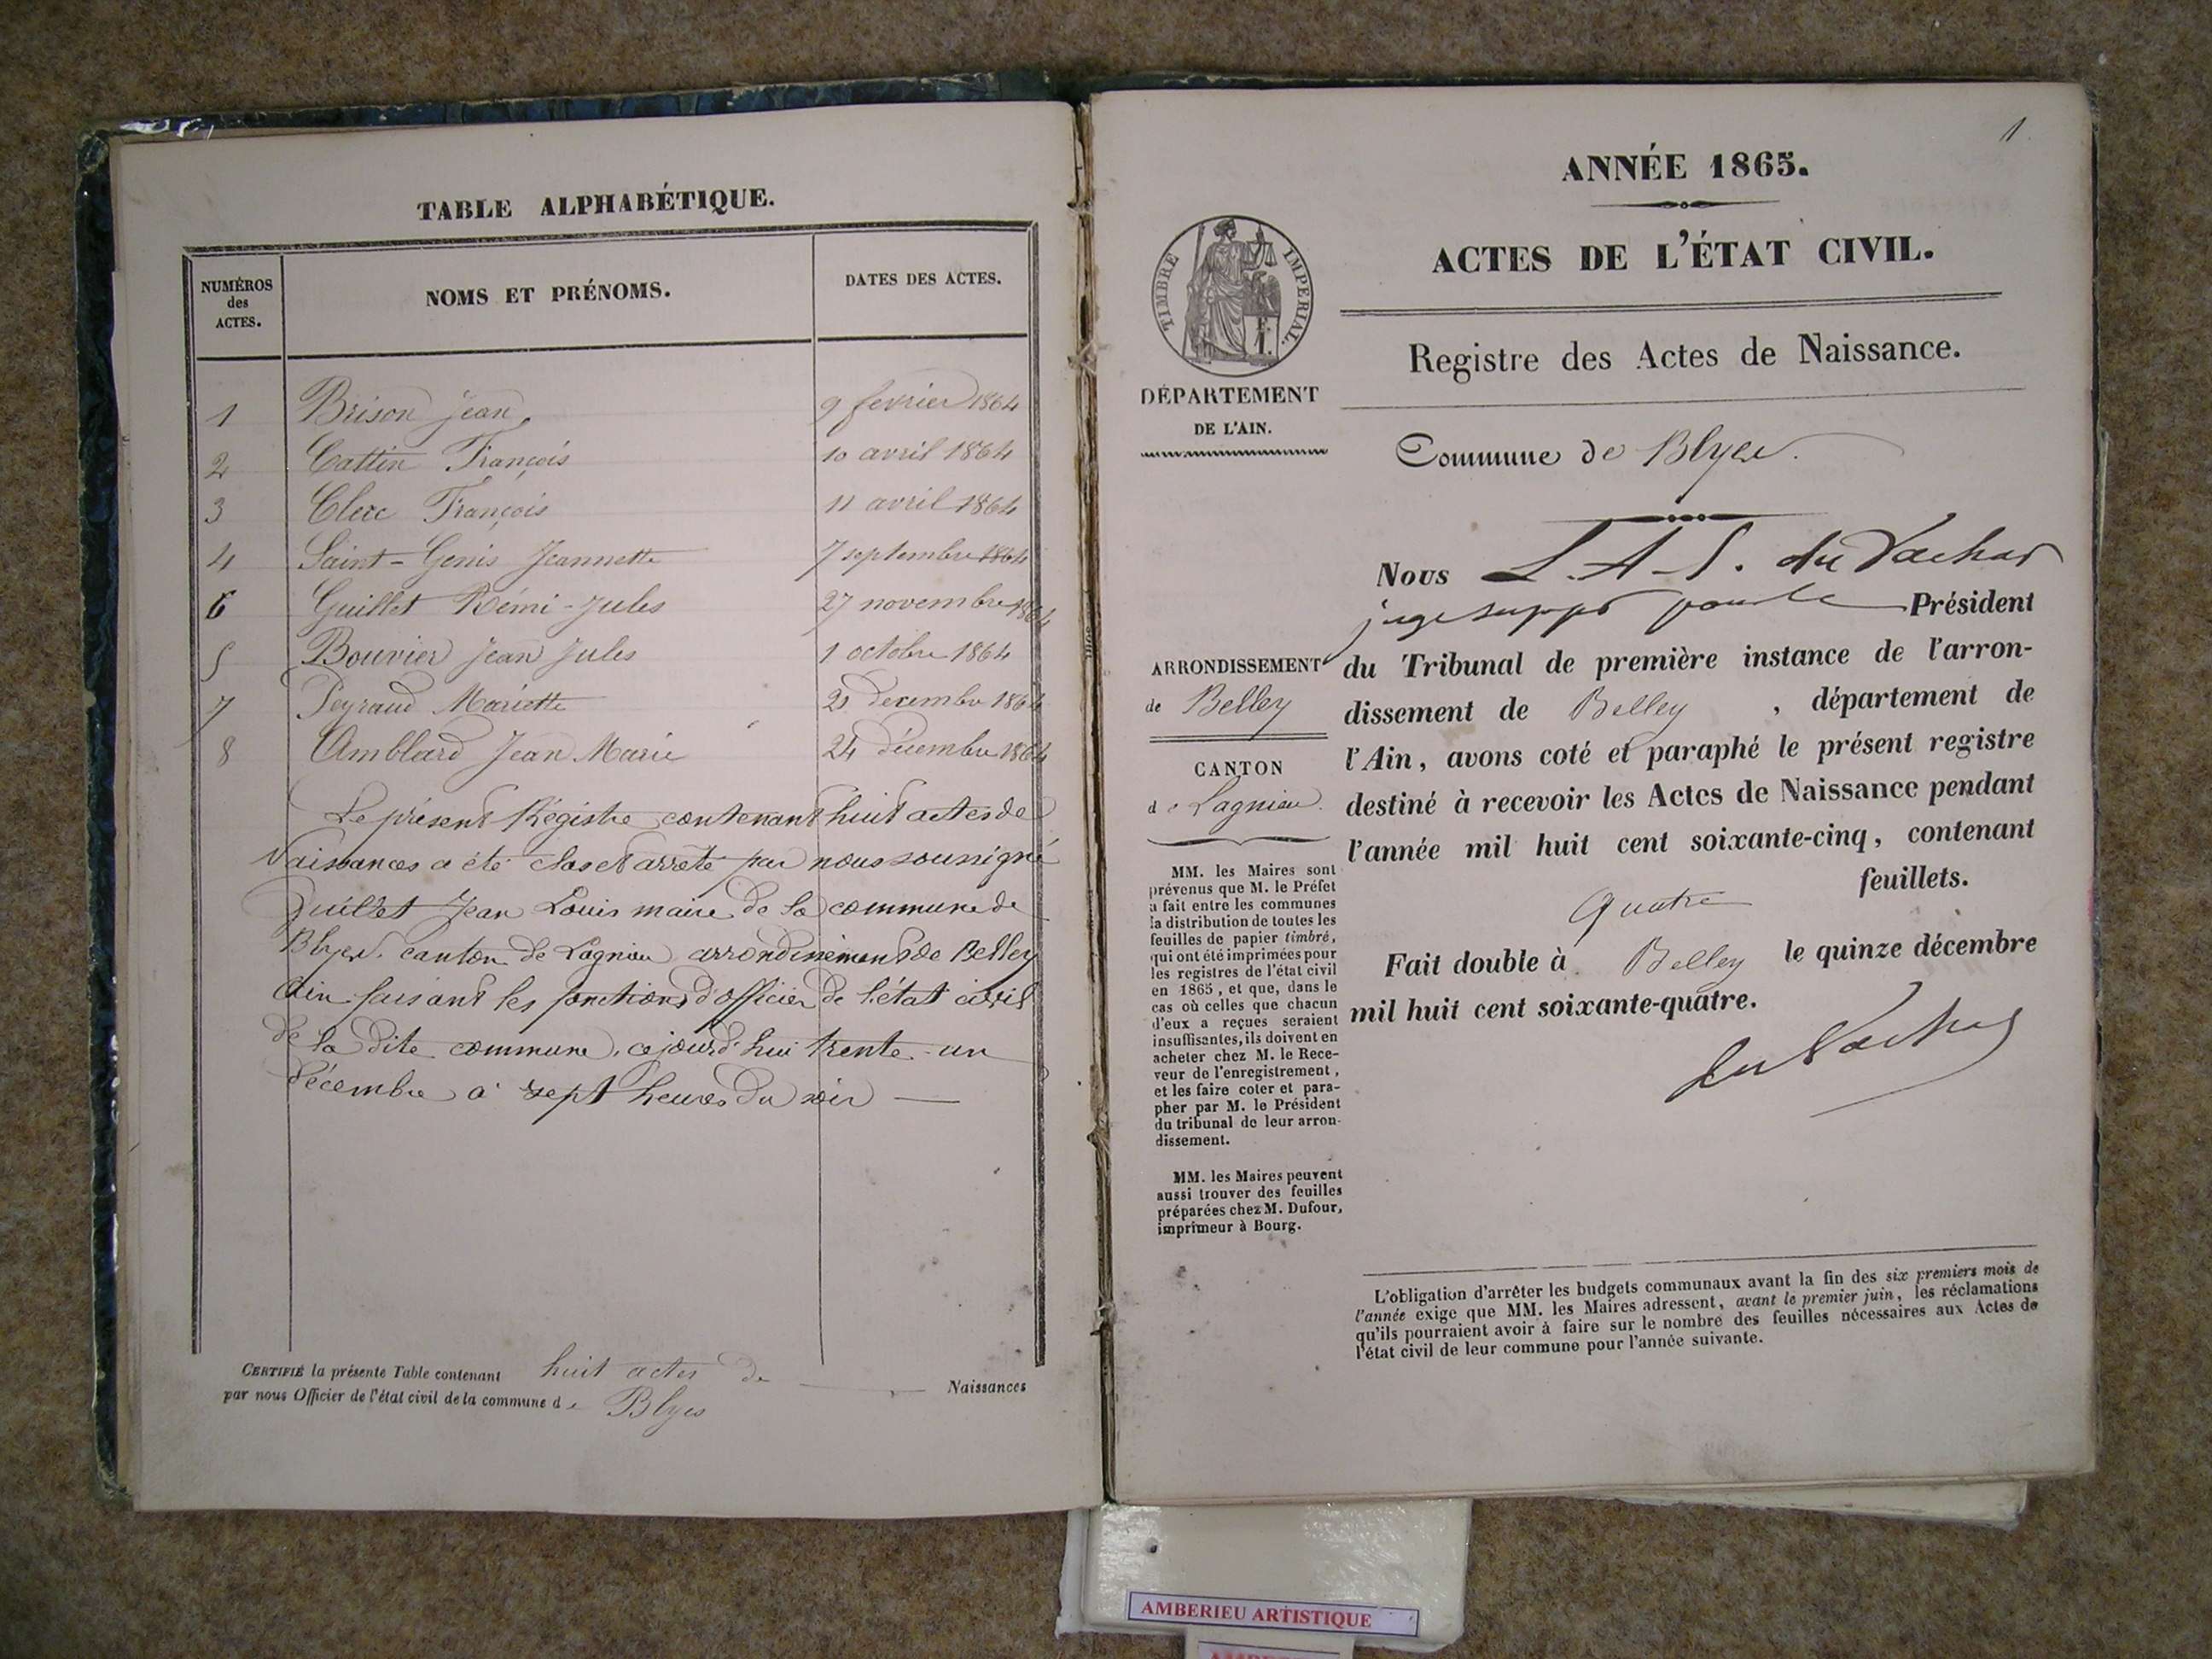 TABLE ALPHABÉTIQUE.
NUMÉROS
des
ACTES.
NOMS ET PRÉNOMS.
DATES DES ACTES.
1 Brison Jean 9 fevrier 1864
2 Cattin François 10 avril 1864
3 Clerc François 11 avril 1864
4 Saint-Genis Jeannette 7 septembre 1864
6 Guillet Rémi-Jules 27 novembre 1864
5 Bouvier Jean Jules 1 octobre 1864
7 Peyraud Mariette 21 decembre 1864
8 Amblard Jean Marie 24 décembre 1864
Le présent Régistre contenant huit actes de
Naissances a été clos et arrêté par nous soussigné
Guillet Jean Louis maire de la commune de
Blyes, canton de Lagnieu arrondissement de Belley
Ain faisant les fonctions d'officier de l'état civil
de la dite commune, cejourd'hui trente-un
décembre à sept heures du soir —
CERTIFIÉ la présente Table contenant huit actes de Naissances
par nous Officier de l'état civil de la commune de Blyes
1
ANNÉE 1865.
ACTES DE L'ÉTAT CIVIL.
Registre des Actes de Naissance.
TIMBRE IMPERIAL.
DÉPARTEMENT
DE L'AIN.
Commune de Blyes.
Nous L. A. du Vachat
juge suppt pour le Président
du Tribunal de première instance de l'arron-
dissement de Belley, département de
l'Ain, avons coté et paraphé le présent registre
destiné à recevoir les Actes de Naissance pendant
l'année mil huit cent soixante-cinq, contenant
Quatre feuillets.
Fait double à Belley le quinze décembre
mil huit cent soixante-quatre.
du Vachat
ARRONDISSEMENT
de Belley
CANTON
de Lagnieu.
MM. les Maires sont
prévenus que M. le Préfet
a fait entre les communes
la distribution de toutes les
feuilles de papier timbré,
qui ont été imprimées pour
les registres de l'état civil
en 1865, et que, dans le
cas où celles que chacun
d'eux a reçues seraient
insuffisantes, ils doivent en
acheter chez M. le Rece-
veur de l'enregistrement,
et les faire coter et para-
pher par M. le Président
du tribunal de leur arron-
dissement.
MM. les Maires peuvent
aussi trouver des feuilles
préparées chez M. Dufour,
imprimeur à Bourg.
L'obligation d'arrêter les budgets communaux avant la fin des six premiers mois de
l'année exige que MM. les Maires adressent, avant le premier juin, les réclamations
qu'ils pourraient avoir à faire sur le nombre des feuilles nécessaires aux Actes de
l'état civil de leur commune pour l'année suivante.
AMBERIEU ARTISTIQUE